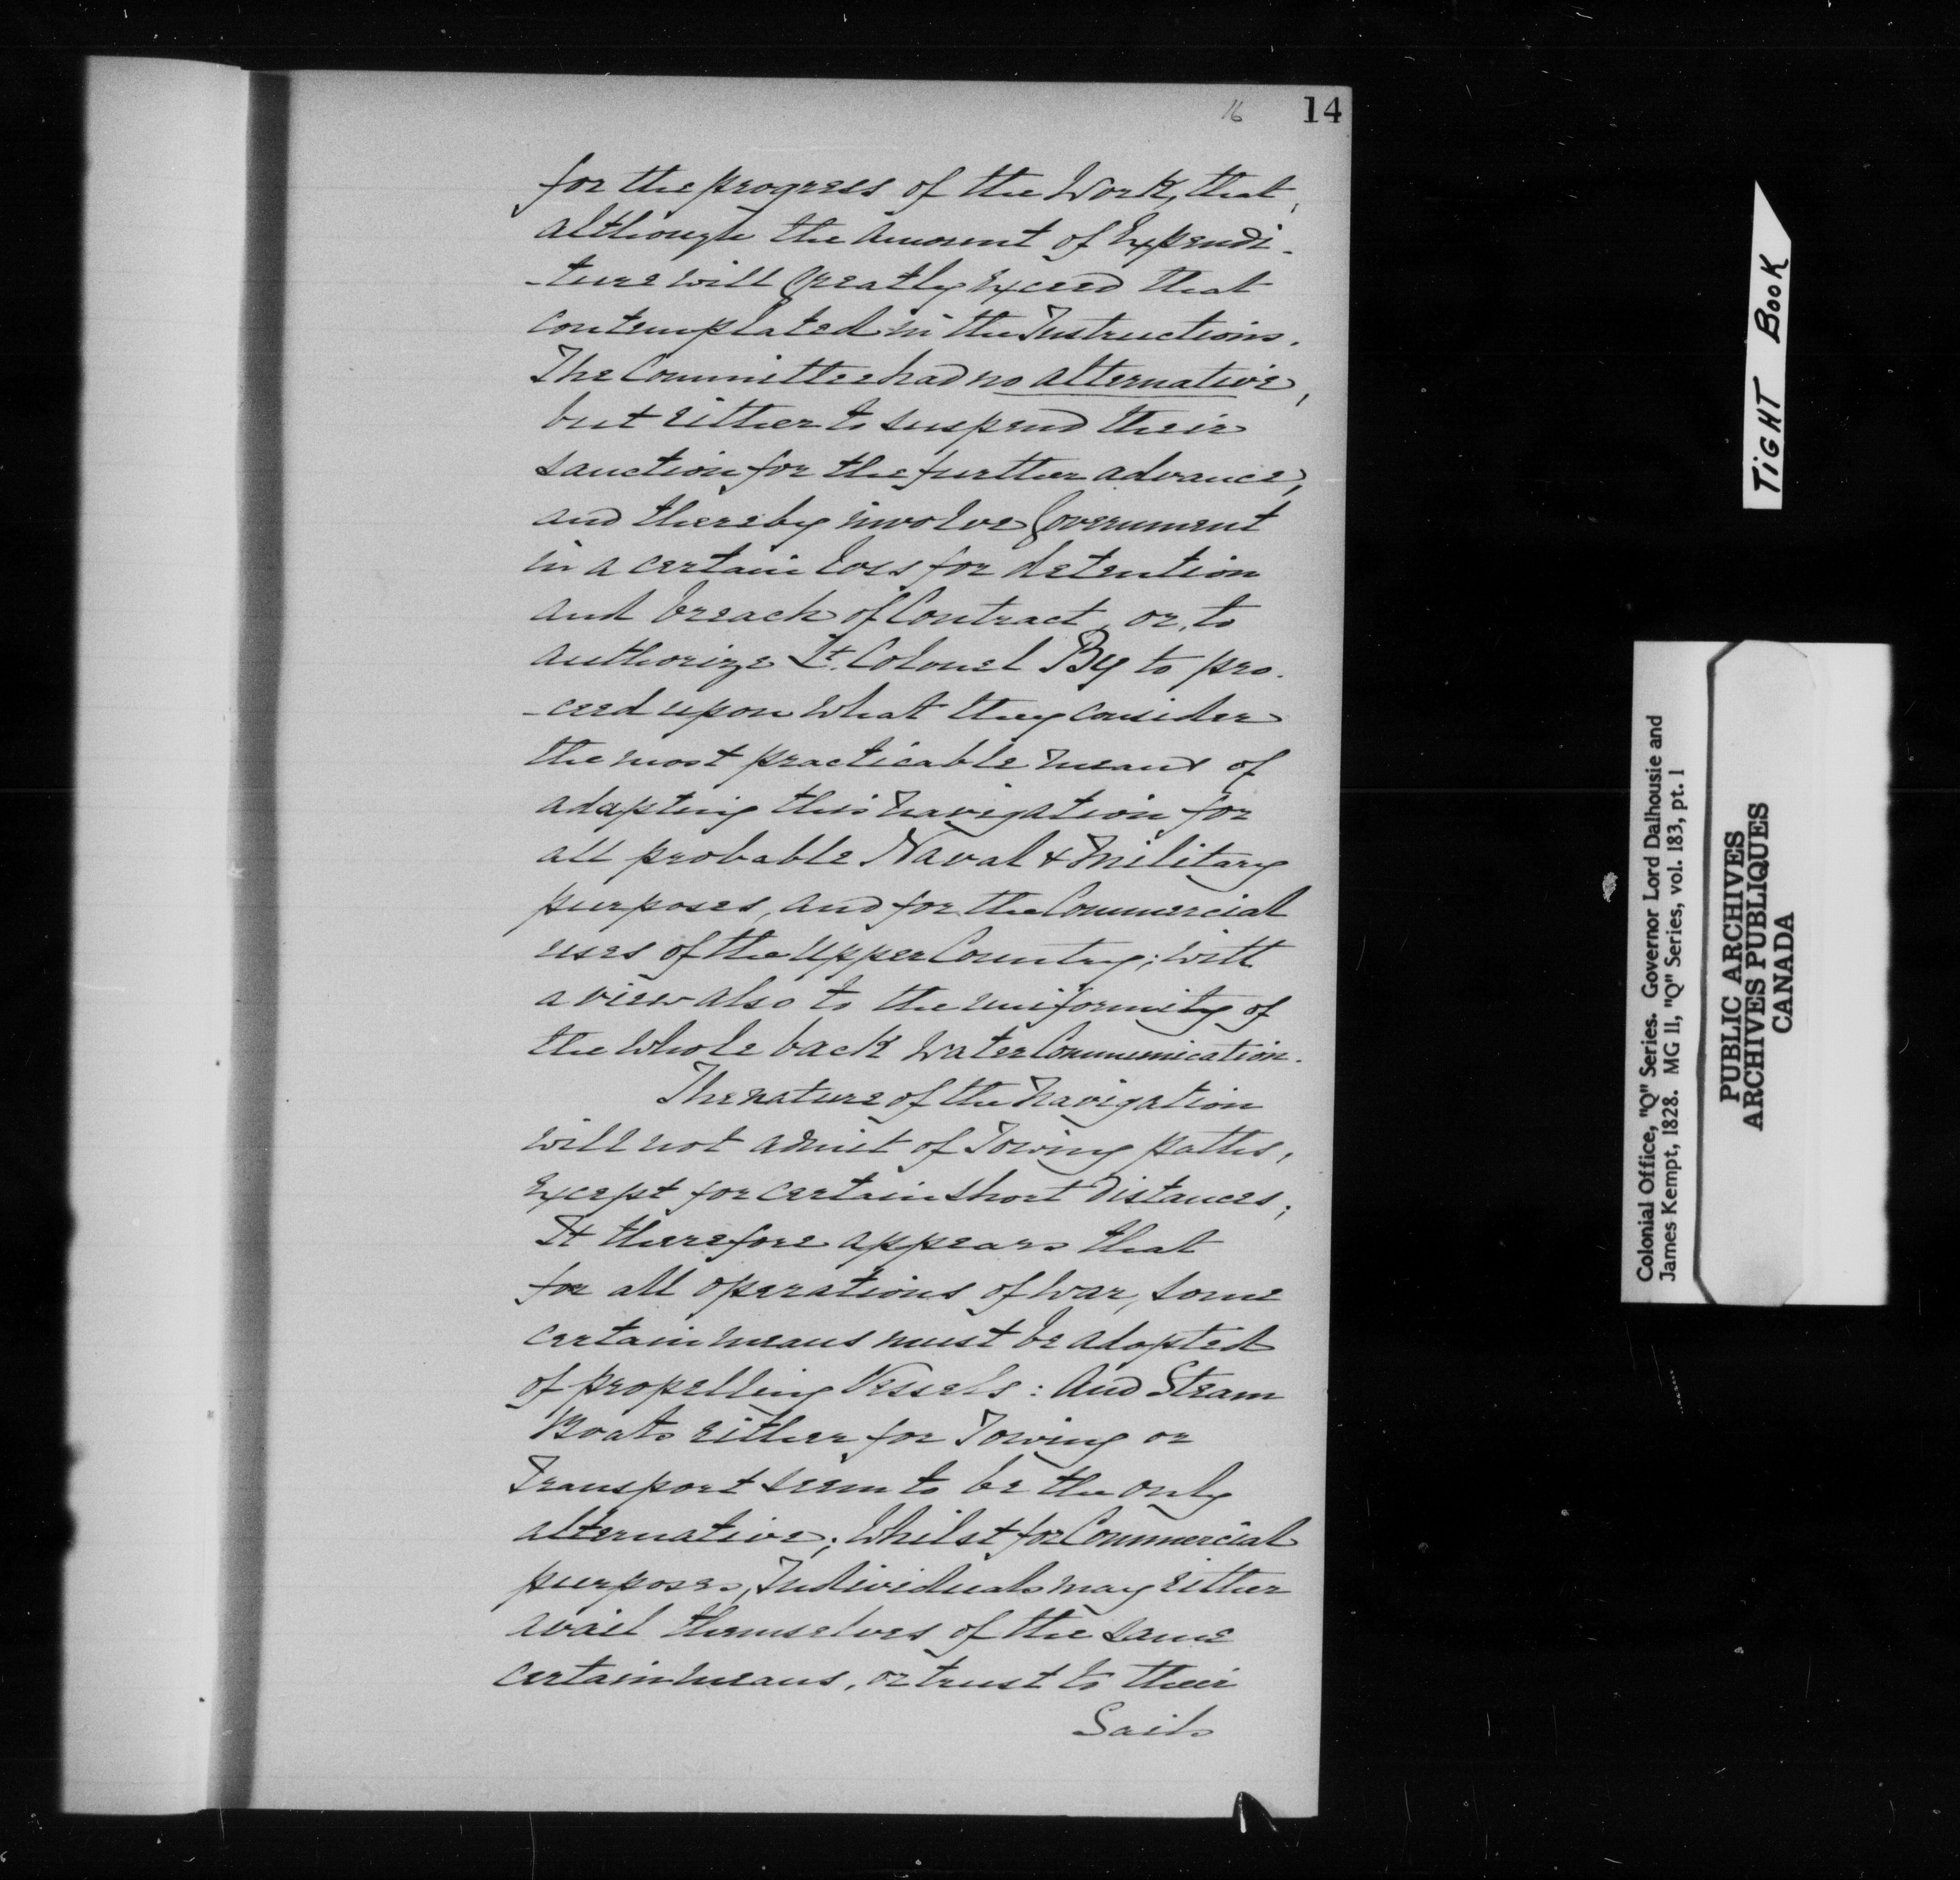 16 14
for the progress of the Work, that,
although the Amount of Expendi-
-ture will Greatly Exceed that
contemplated in the Instructions.
The Committee had no alternative,
but Either to suspend their
sanction for the further advance,
and thereby involve Government
in a certain loss for detention
and breach of Contract, or, to
authorize Lt. Colonel By to pro-
-ceed upon what they consider
the most practicable means of
adapting this Navigation for
all probable Naval & Military
purposes, and for the Commercial
uses of the Upper Country; with
a view also to the uniformity of
the whole back Water Communication.
The nature of the Navigation
will not admit of Towing paths,
Except for certain short Distances;
It therefore appears that
for all operations of War, some
certain means must be adopted
of propelling Vessels: And Steam
Boats Either for Towing or
Transport seem to be the only
alternative; Whilst for Commercial
purposes, Individuals may Either
avail themselves of the same
certain means, or trust to their
Sails
TIGHT BOOK
Colonial Office, "Q" Series. Governor Lord Dalhousie and
James Kempt, 1828. MG 11, "Q" Series, vol. 183, pt. 1
PUBLIC ARCHIVES
ARCHIVES PUBLIQUES
CANADA